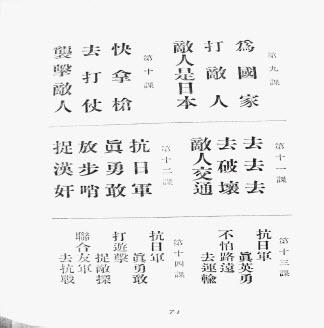 第九課
爲國家
打敵人
敵人是日本
第十課
快拿槍
去打仗
襲擊敵人
第十一課
去去去
去破壞
敵人交通
第十二課
抗日軍
眞勇敢
放步哨
捉漢奸
第十三課
抗日軍
眞英勇
不怕路遠
去運輸
第十四課
抗日軍
眞勇敢
打遊擊
捉敵探
聯合友軍
去抗戰